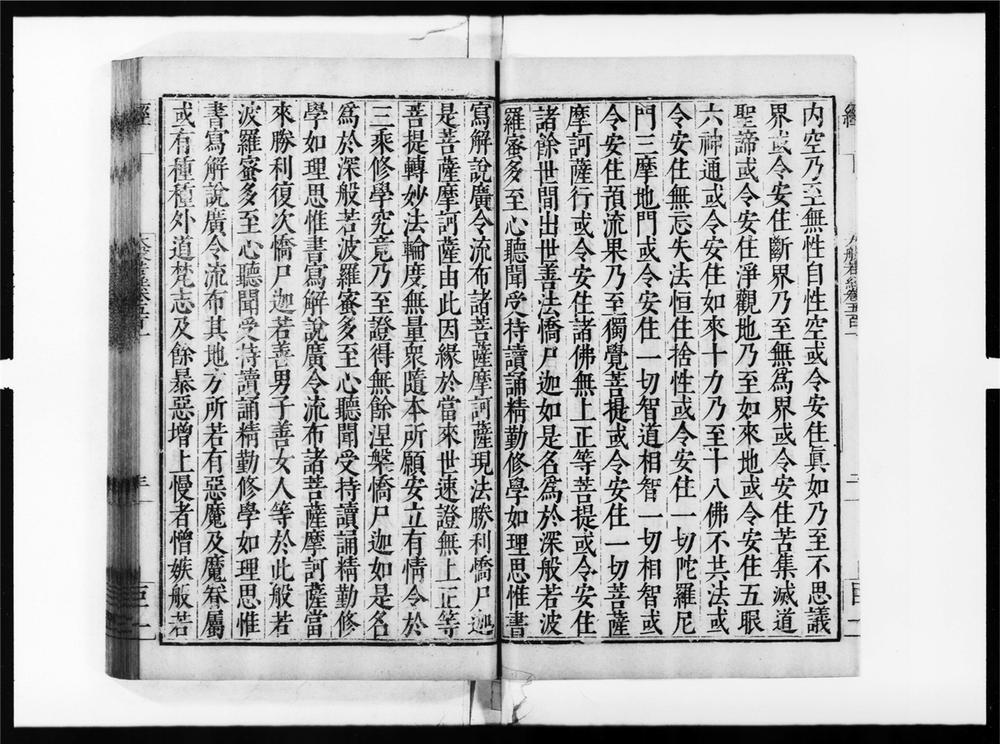 內空乃至無性自性空或令安住眞如乃至不思議
界或令安住斷界乃至無爲界或令安住苦集滅道
聖諦或令安住淨觀地乃至如來地或令安住五眼
六神通或令安住如來十力乃至十八佛不共法或
令安住無忘失法恒住捨性或令安住一切陀羅尼
門三摩地門或令安住一切智道相智一切相智或
令安住預流果乃至獨覺菩提或令安住一切菩薩
摩訶薩行或令安住諸佛無上正等菩提或令安住
諸餘世間出世善法憍尸迦如是名爲於深般若波
羅蜜多至心聽聞受持讀誦精勤修學如理思惟書
寫解說廣令流布諸菩薩摩訶薩現法勝利憍尸迦
是菩薩摩訶薩由此因緣於當來世速證無上正等
菩提轉妙法輪度無量衆隨本所願安立有情令於
三乘修學究竟乃至證得無餘涅槃憍尸迦如是名
爲於深般若波羅蜜多至心聽聞受持讀誦精勤修
學如理思惟書寫解說廣令流布諸菩薩摩訶薩當
來勝利復次憍尸迦若善男子善女人等於此般若
波羅蜜多至心聽聞受持讀誦精勤修學如理思惟
書寫解說廣令流布其地方所若有惡魔及魔眷屬
或有種種外道梵志及餘暴惡增上慢者憎嫉般若
經